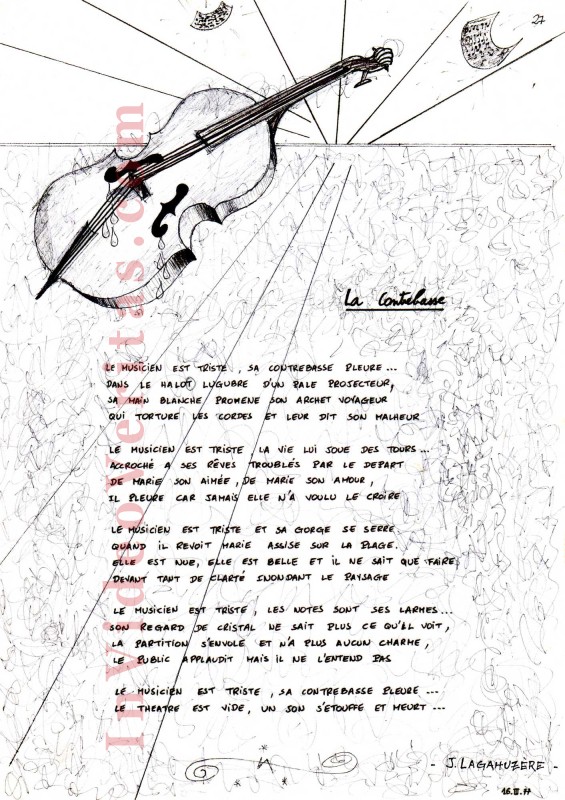 27
La Contrebasse
LE MUSICIEN EST TRISTE, SA CONTREBASSE PLEURE...
DANS LE HALOT LUGUBRE D'UN PALE PROJECTEUR,
SA MAIN BLANCHE PROMENE SON ARCHET VOYAGEUR
QUI TORTURE LES CORDES ET LEUR DIT SON MALHEUR
LE MUSICIEN EST TRISTE LA VIE LUI JOUE DES TOURS...
ACCROCHÉ A SES RÊVES TROUBLÉS PAR LE DEPART
DE MARIE SON AIMÉE, DE MARIE SON AMOUR,
IL PLEURE CAR JAMAIS ELLE N'A VOULU LE CROIRE
LE MUSICIEN EST TRISTE ET SA GORGE SE SERRE
QUAND IL REVOIT MARIE ASSISE SUR LA PLAGE.
ELLE EST NUE, ELLE EST BELLE ET IL NE SAIT QUE FAIRE
DEVANT TANT DE CLARTÉ INONDANT LE PAYSAGE
LE MUSICIEN EST TRISTE, LES NOTES SONT SES LARMES...
SON REGARD DE CRISTAL NE SAIT PLUS CE QU'IL VOIT,
LA PARTITION S'ENVOLE ET N'A PLUS AUCUN CHARME,
LE PUBLIC APPLAUDIT MAIS IL NE L'ENTEND PAS
LE MUSICIEN EST TRISTE, SA CONTREBASSE PLEURE...
LE THEATRE EST VIDE, UN SON S'ETOUFFE ET MEURT...
- J. LAGAHUZERE -
InVideoVeritas.com